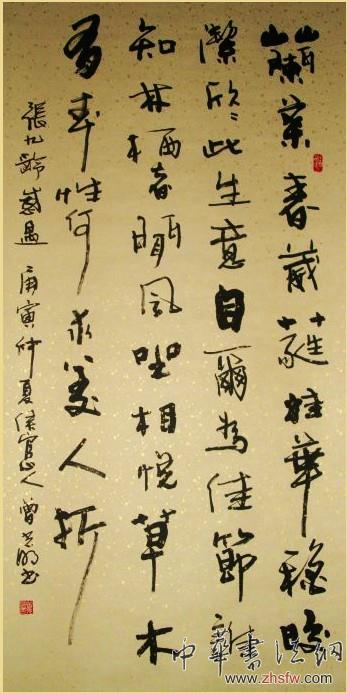 蘭葉春葳蕤桂華穐皎
潔欣〻此生意自爾為佳節誰
知林栖者聞風坐相悦草木
有本性何求美人折
張九齡感遇 庚寅仲夏侯官人 曾書
中華書法網
www.zhsfw.com